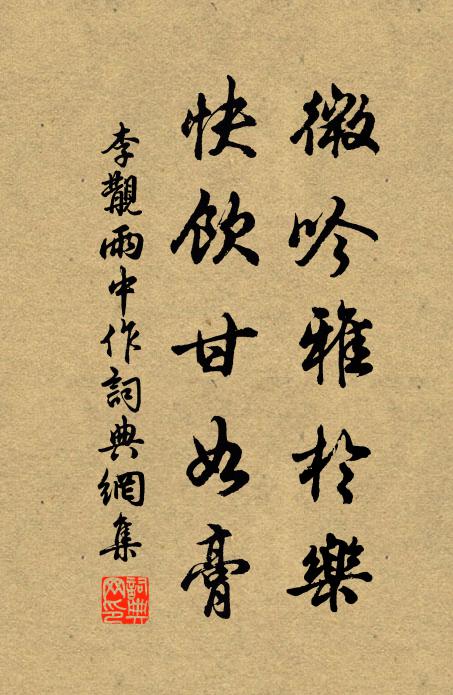 微吟雅於樂
快飲甘如膏
李觀雨中作詞典網集
詞典網印